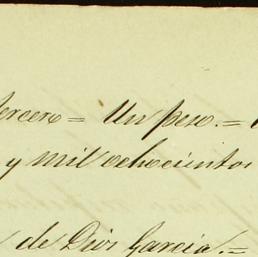 tercero = Un peso. =
y mil ochocientos
de Dios Garcia. =